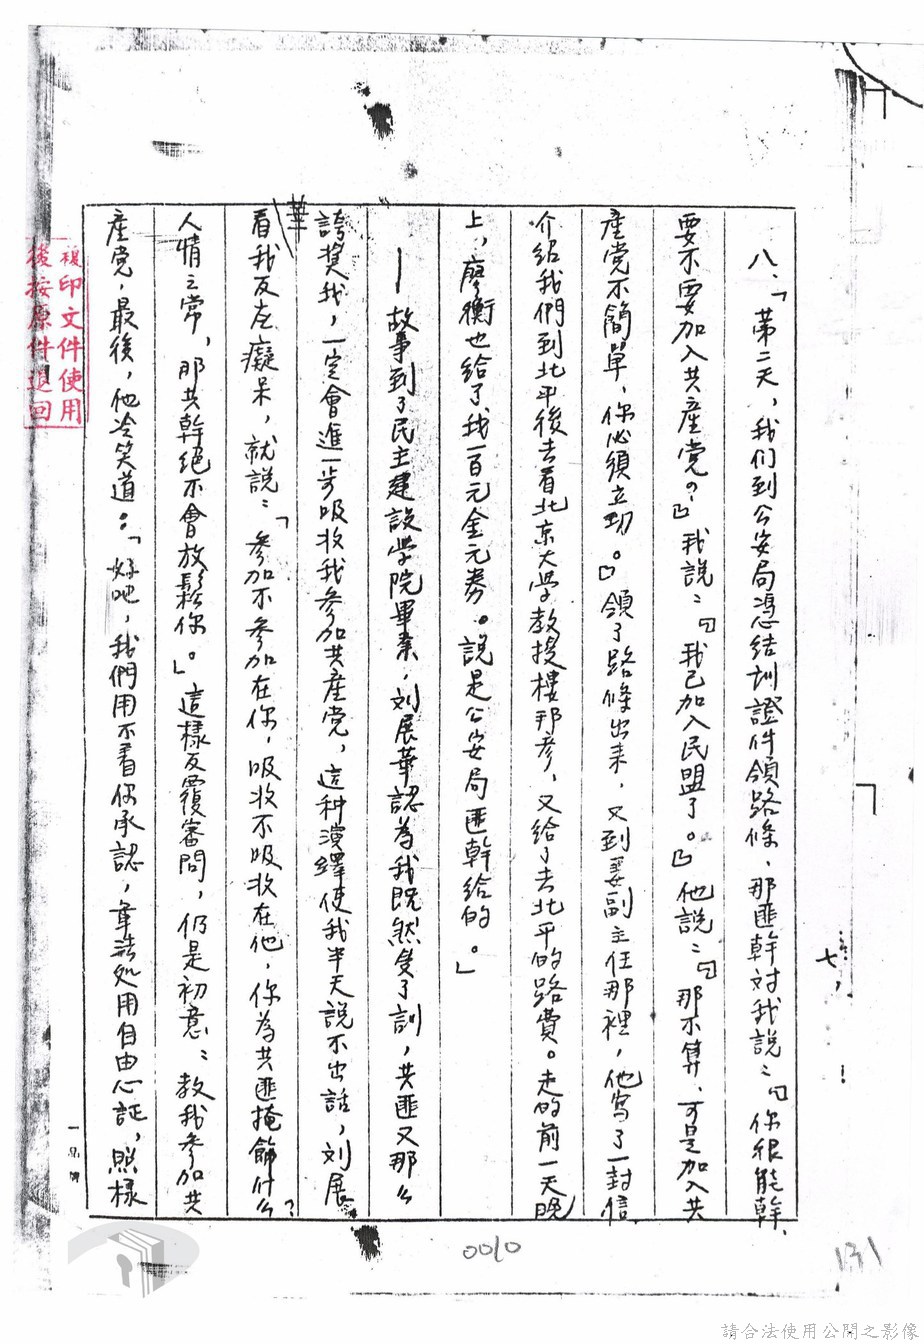 八、「第二天，我们到公安局憑结訓證件領路條，那匪幹对我說：『你很能幹，
要不要加入共產党？』我說：『我已加入民盟了。』他說：『那不算，可是加入共
產党不簡單，你必須立功。』領了路條出来，又到姜副主任那裡，他寫了一封信
介紹我們到北平後去看北京大学教授樓邦彦，又給了去北平的路費。走的前一天晚
上，廖衡也给了我一百元金元券。說是公安局匪幹給的。」
—故事到了民主建設学院畢業，刘展華認為我既然受了訓，共匪又那么
誇奨我，一定會進一步吸收我参加共産党，这种演繹使我半天說不出話，刘展
華
看我反左癡呆，就說：「参加不参加在你，吸收不吸收在他，你為共匪掩飾什么？
人情之常，那共幹絕不會放鬆你。」這樣反覆審問，仍是初意：教我参加共
産党，最後，他冷笑道：「好吧，我們用不着你承認，軍法処用自由心証，照樣
七，
複印文件使用
後按原件退回
一品牌
0010
131
請合法使用公開之影像